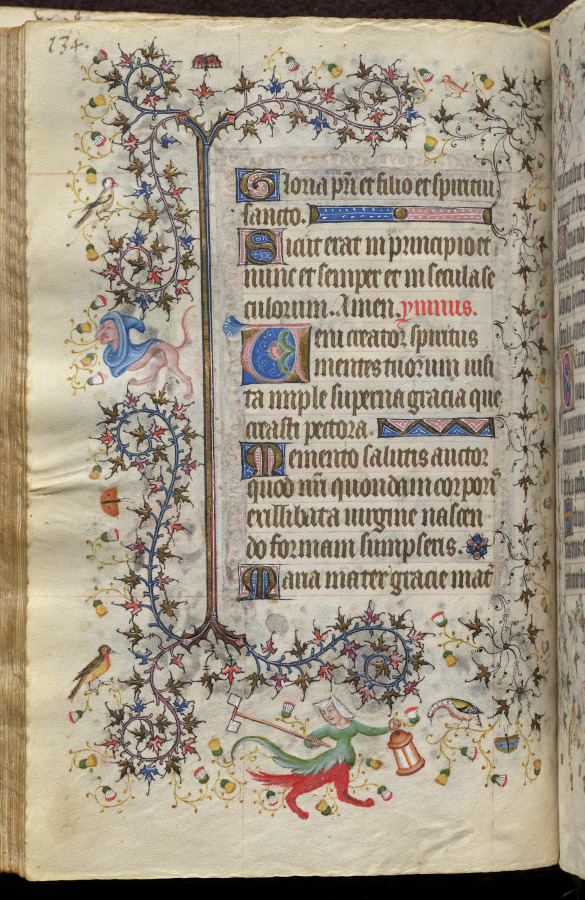 134.
Gloria pr̄i et filio et spiritui
sancto.
Sicut erat in principio et
nunc et semper et in secula se
culorum. Amen. ymnus.
Veni creator spiritus
mentes tuorum uisi
ta imple superna gracia que
creasti pectora.
Memento salutis auctor
quod nr̄i quondam corporis
ex illibata uirgine nascen
do formam sumpseris.
Maria mater gracie mat̄